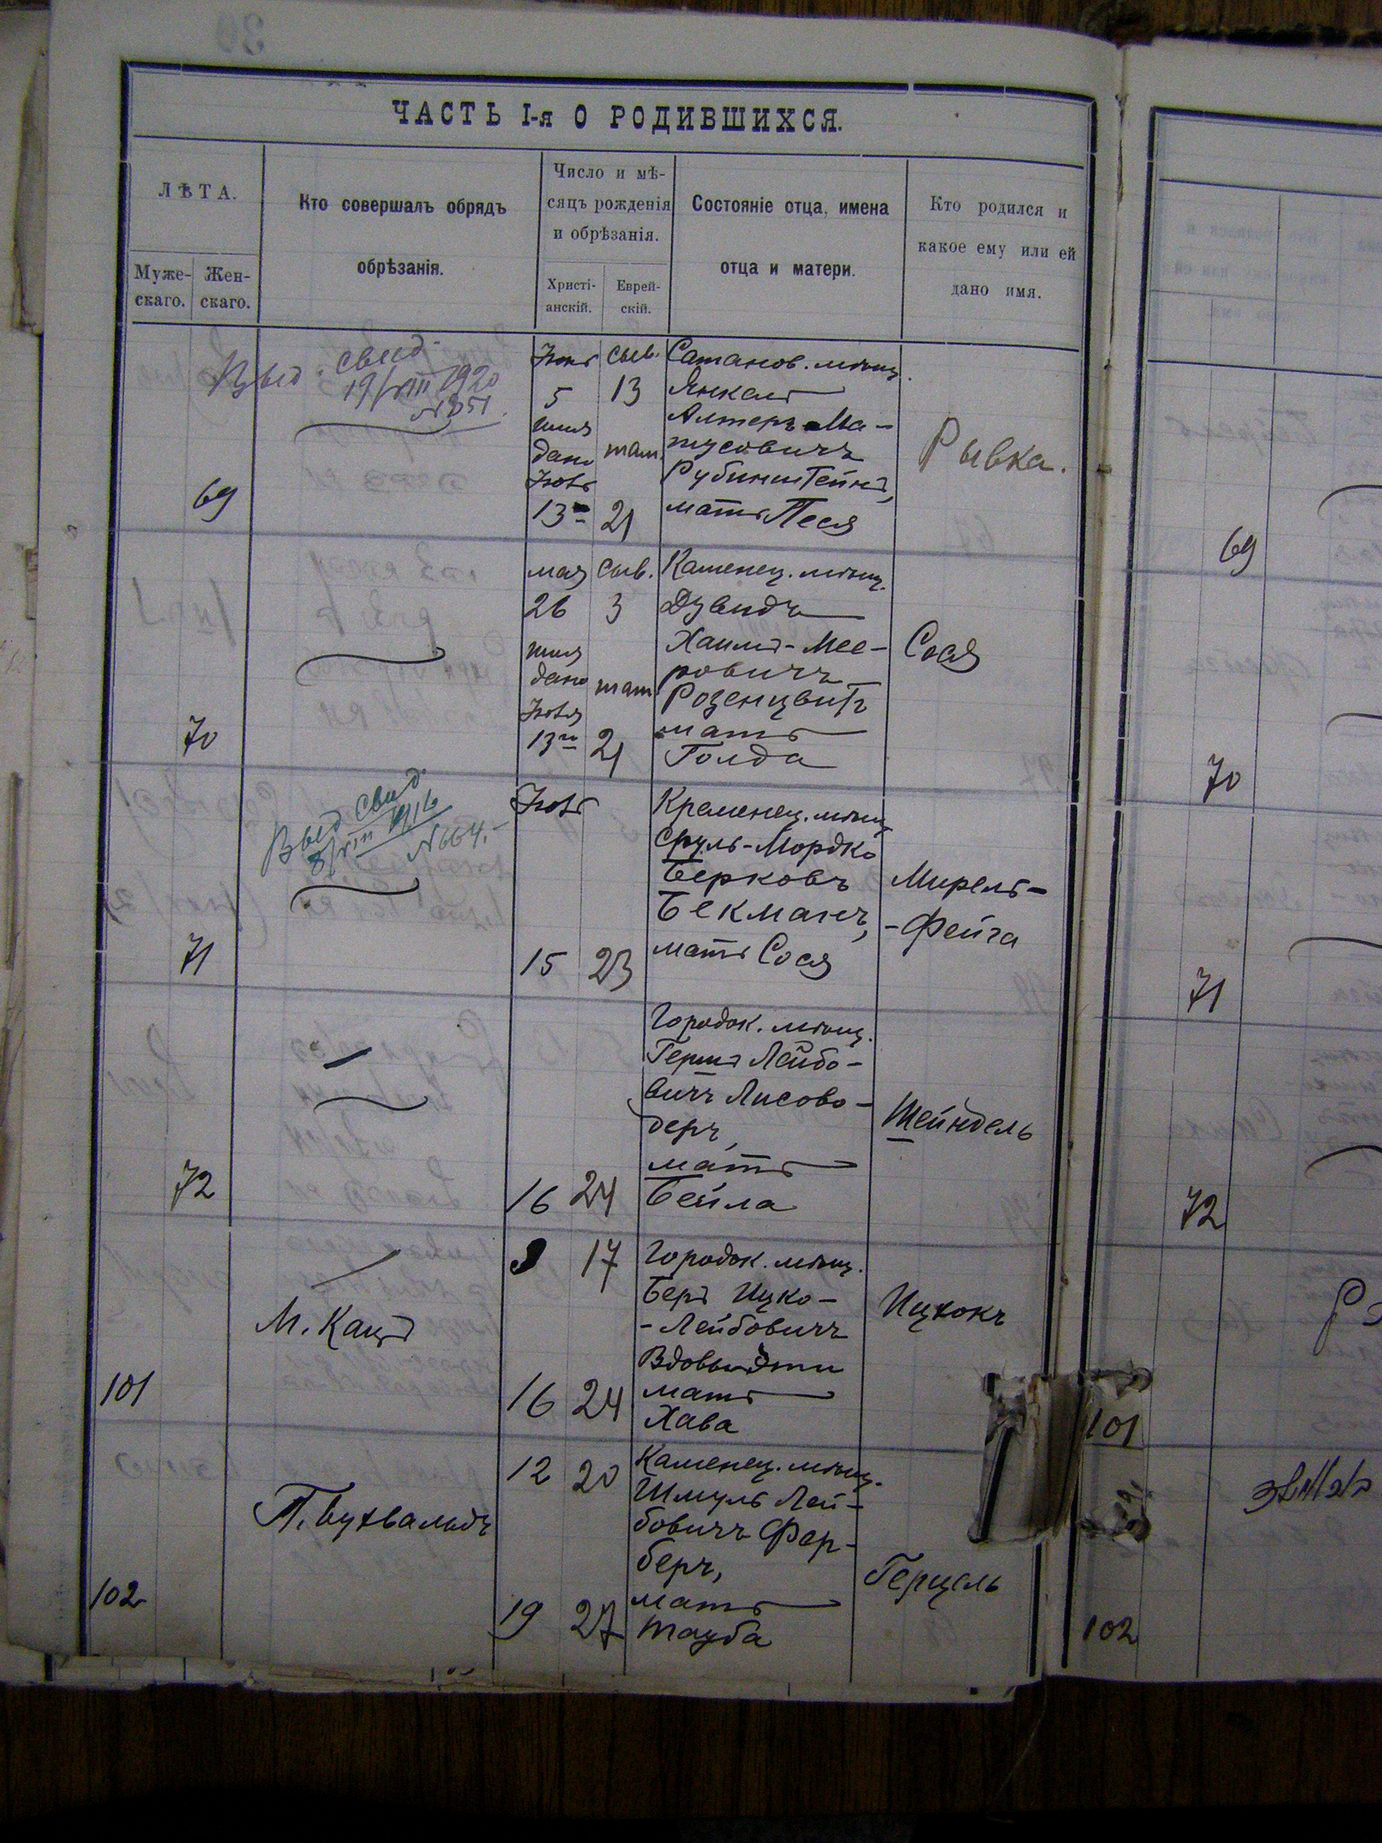 ЧАСТЬ I-я О РОДИВШИХСЯ.
ЛѢТА.
Муже-
скаго.
Жен-
скаго.
Кто совершалъ обрядъ
обрѣзанія.
Число и мѣ-
сяцъ рожденія
и обрѣзанія.
Христі-
анскій.
Еврей-
скій.
Состояніе отца, имена
отца и матери.
Кто родился и
какое ему или ей
дано имя.
69
Выд. свид.
19/VIII 1920
5
13
имя
дано
13
21
Сатанов. мѣщ.
Янкель
Алтеръ Ма-
тусовичъ
Рубинштейнъ,
мать Песя
Рывка.
70
мая
сив.
26
3
имя
дано
13го
21
Каменец. мѣщ.
Дувидъ
Хаимъ-Мее-
ровичъ
Розенцвигъ
мать
Голда
Сося
71
Выд свид.
8/VIII 1916
№664.
15
23
Кременец. мѣщ
Сруль-Мордко
Берковъ
Бекманъ,
мать Сося
Мирель-
-Фейга
72
16
24
Городок. мѣщ.
Герш Лейбо-
вичъ Лисово-
деръ,
мать
Бейла
Шейндель
101
М. Кацъ
9
17
16
24
Городок. мѣщ.
Беръ Ицко-
-Лейбовичъ
мать
Хава
Ицхокъ
102
П. Бухвальдъ
12
20
19
27
Каменец. мѣщ.
Шмуль Лей-
бовичъ Фер-
беръ,
мать
Тауба
Герцель
69
70
71
72
101
102